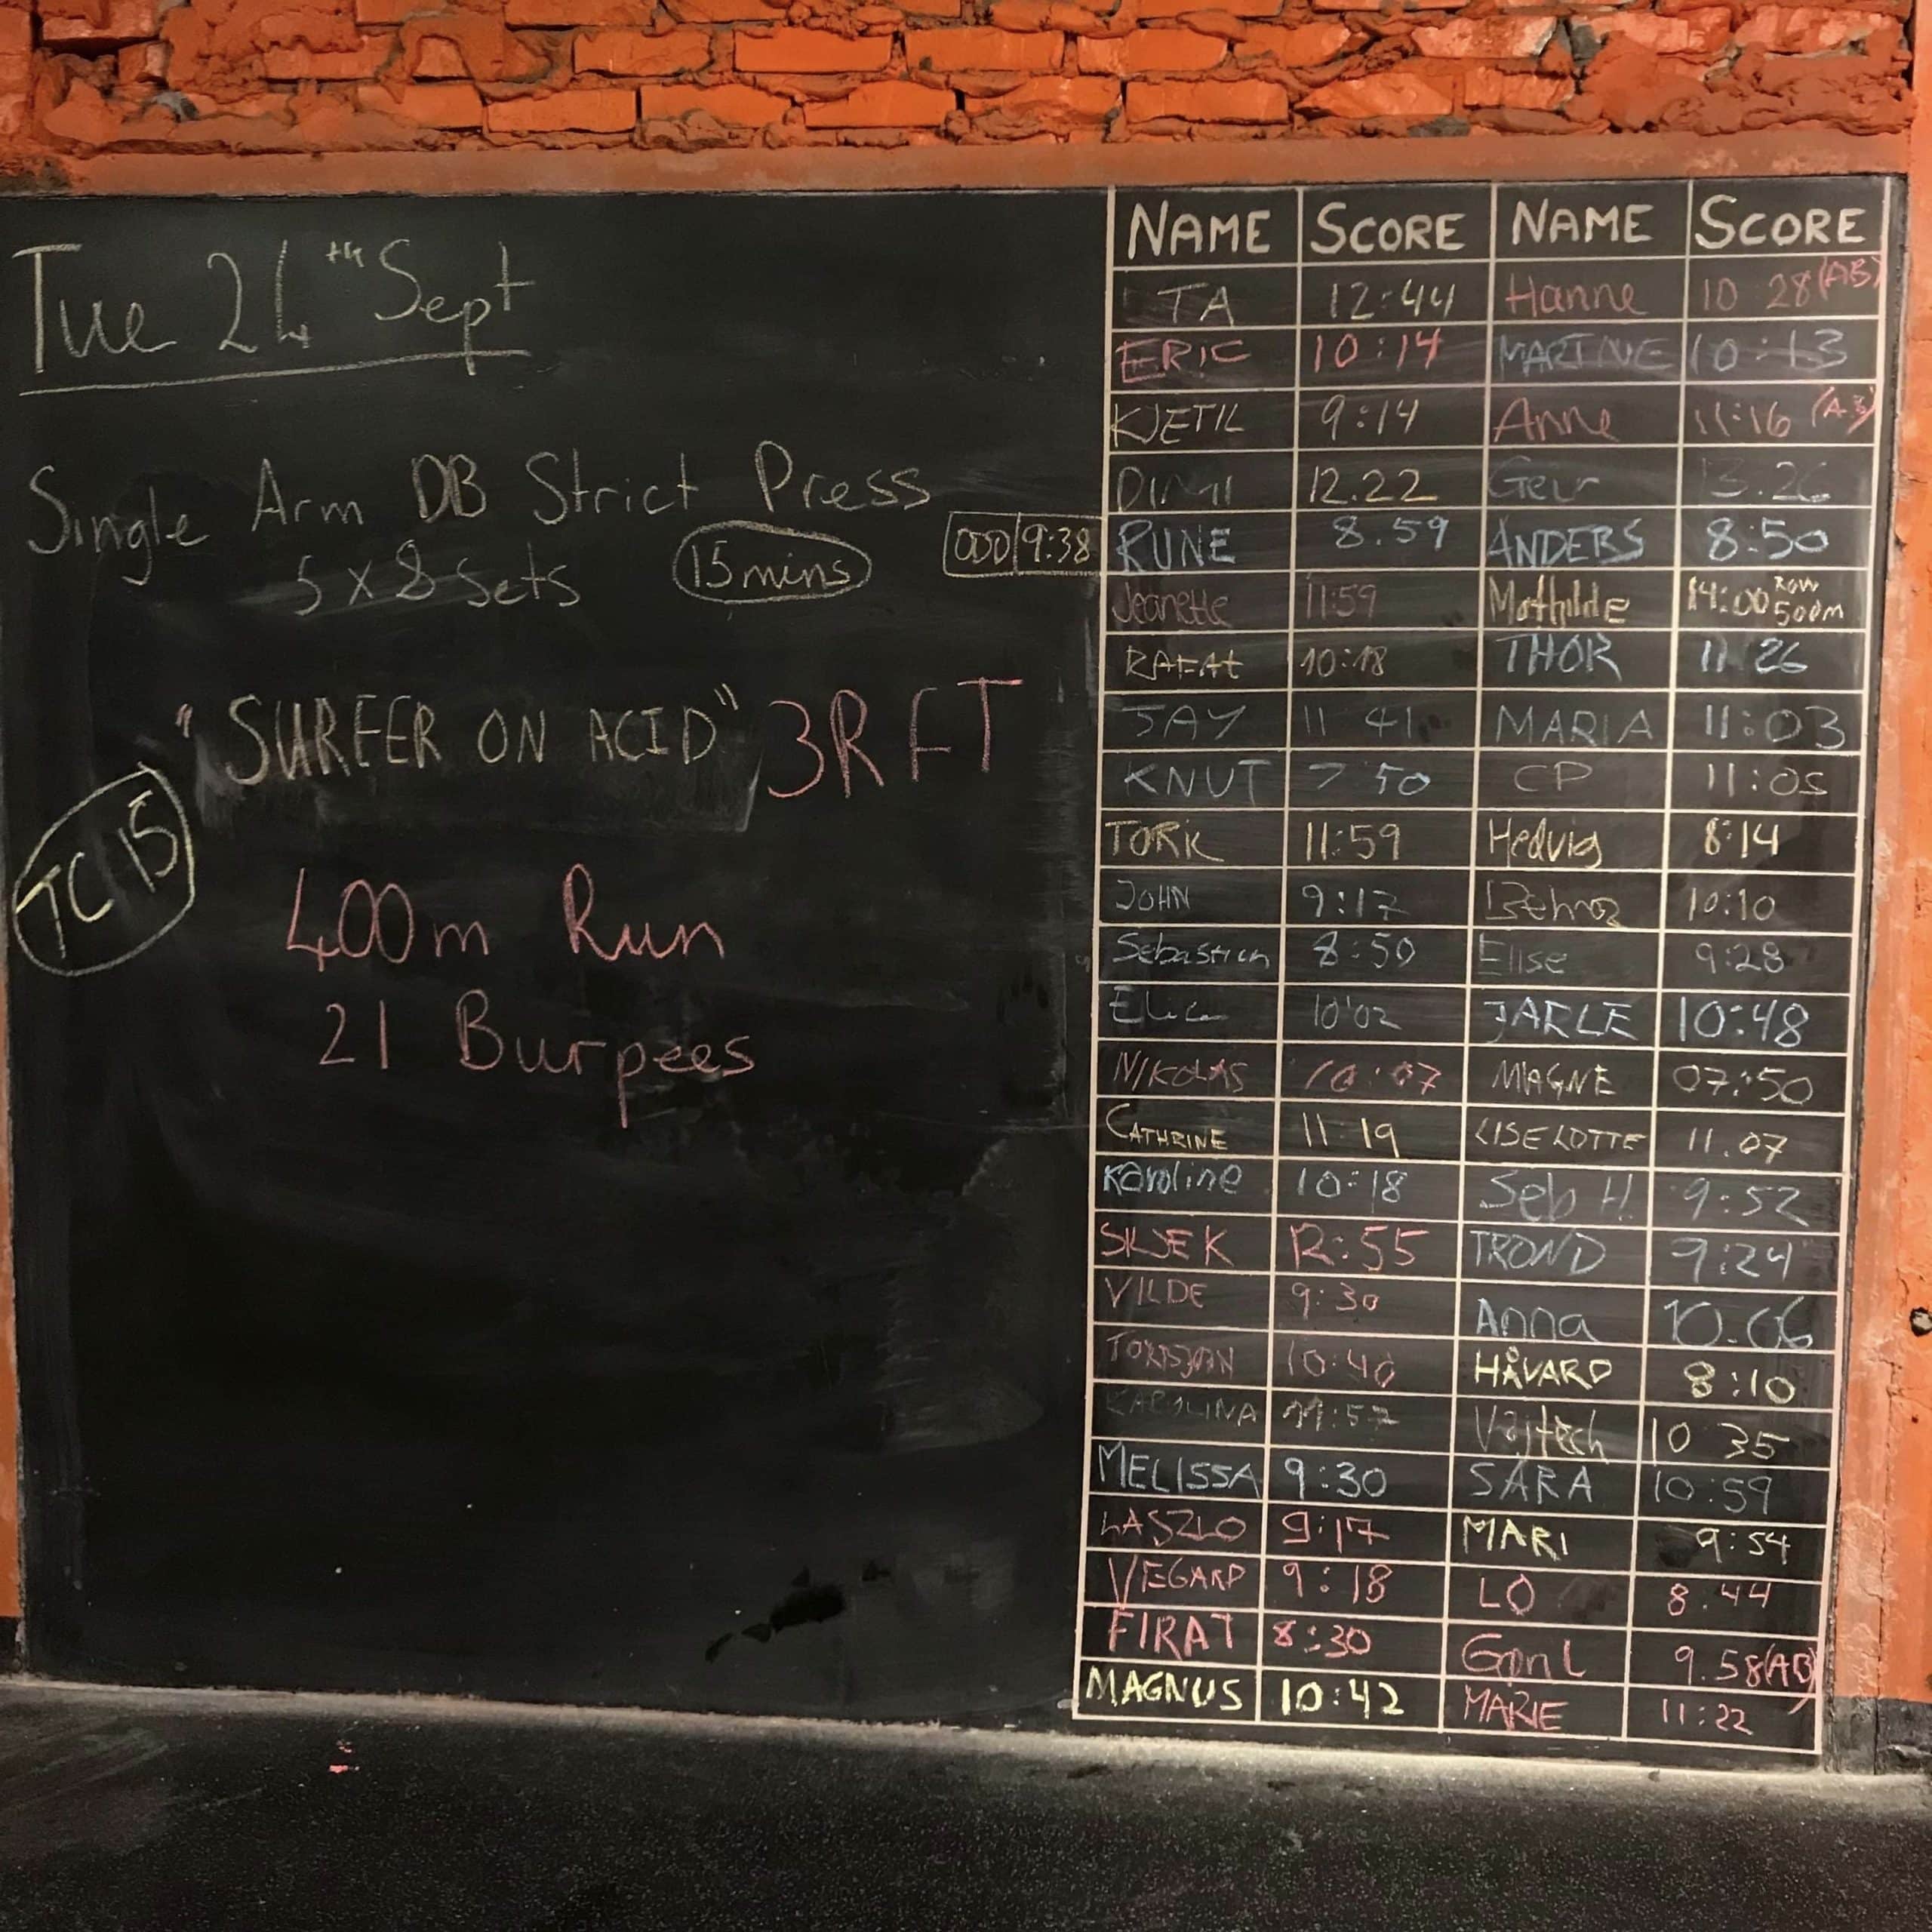 Tue 24th Sept
Single Arm DB Strict Press
5 x 8 Sets 15mins
"SURFER ON ACID" 3RFT
TC 15
400m Run
21 Burpees
ODD 9:38
NAME SCORE NAME SCORE
TA 12:44 Hanne 10 28 (AB)
ERIC 10:14 MARTINE 10:13
KJETIL 9:14 Anne 11:16 (AB)
DIMI 12.22 Geir 13.26
RUNE 8.59 ANDERS 8:50
Jeanette 11:59 Mathilde 14:00 Row 500m
RAFAt 10:18 THOR 11 26
JAY 11 41 MARIA 11:03
KNUT 7 50 CP 11:05
TORK 11:59 Hedvig 8:14
JOHN 9:17 10:10
Sebastian 8:50 Elise 9:28
10'02 JARLE 10:48
NIKOLAS 10:07 MAGNE 07:50
CATHRINE 11 19 LISELOTTE 11.07
Karoline 10:18 Seb H. 9:52
SILJE K 12:55 TROND 9:24
VILDE 9:30 Anna 10.06
TORBJØRN 10:40 HÅVARD 8:10
KAROLINA 11:57 Vojtech 10 35
MELISSA 9:30 SARA 10:59
LASZLO 9:17 MARI 9:54
VEGARD 9:18 LO 8.44
FIRAT 8:30 9.58 (AB)
MAGNUS 10:42 MARIE 11:22